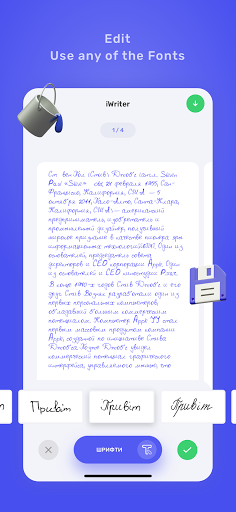 Edit
Use any of the Fonts
iWriter
1 / 4
Сти вен Пол
Пол «Sина»
Франциско, Калифорния, США —
октября 2011, Пало-Алто, Санта-Клара,
Калифорния, США) — американский
предприниматель, изобретатель и
промышленный дизайнер, получивший
широкое признание в качестве пионера эры
информационных технологий. Один из
основателей, председатель совета
директоров и CEO корпорации Apple. Один
из основателей и CEO киностудии Pixar.
В конце 1970-х годов Стив и его
друг Стив Возняк разработали один из
первых персональных компьютеров,
обладавший большим коммерческим
потенциалом. Компьютер Apple II стал
первым массовым продуктом компании
Apple, созданной по инициативе Стива
Джобса. Позже Джобс увидел
коммерческий потенциал графического
интерфейса, управляемого мышью, что
Привіт
Привіт
Привіт
ШРИФТИ